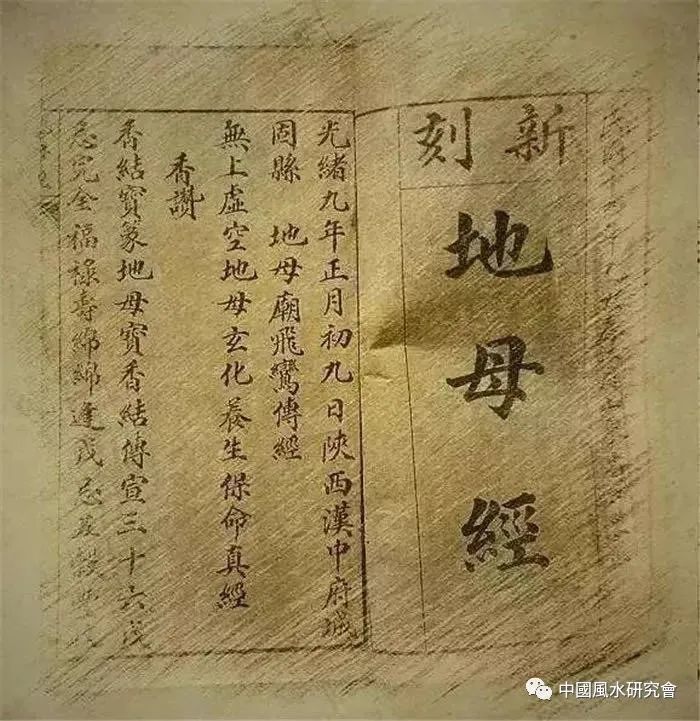 新刻
地母經
光緒九年正月初九日陝西漢中府城
固縣 地母廟飛鸞傳經
無上虛空地母玄化養生保命真經
香讚
香結寶篆地母寶香結傳宣三十六戊
忌完全福祿壽綿綿逢戊忌五穀豐
中國風水研究會